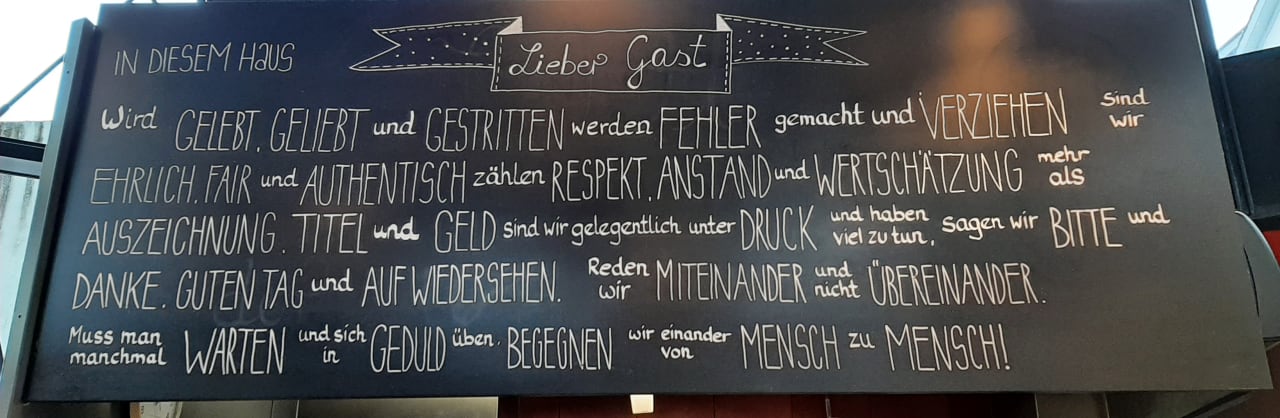 Lieber Gast
IN DIESEM HaUS
Wird GELEBT, GELIEBT und GESTRITTEN werden FEHLER gemacht und VERZIEHEN sind wir
EHRLICH, FAIR und AUTHENTISCH zählen RESPEKT, ANSTAND und WERTSCHÄTZUNG mehr als
AUSZEICHNUNG, TITEL und GELD sind wir gelegentlich unter DRUCK und haben viel zu tun, sagen wir BITTE und
DANKE, GUTEN TAG und AUF WIEDERSEHEN. Reden wir MITEINANDER und nicht ÜBEREINANDER.
Muss man manchmal WARTEN und sich in GEDULD üben, BEGEGNEN wir einander von MENSCH zu MENSCH!